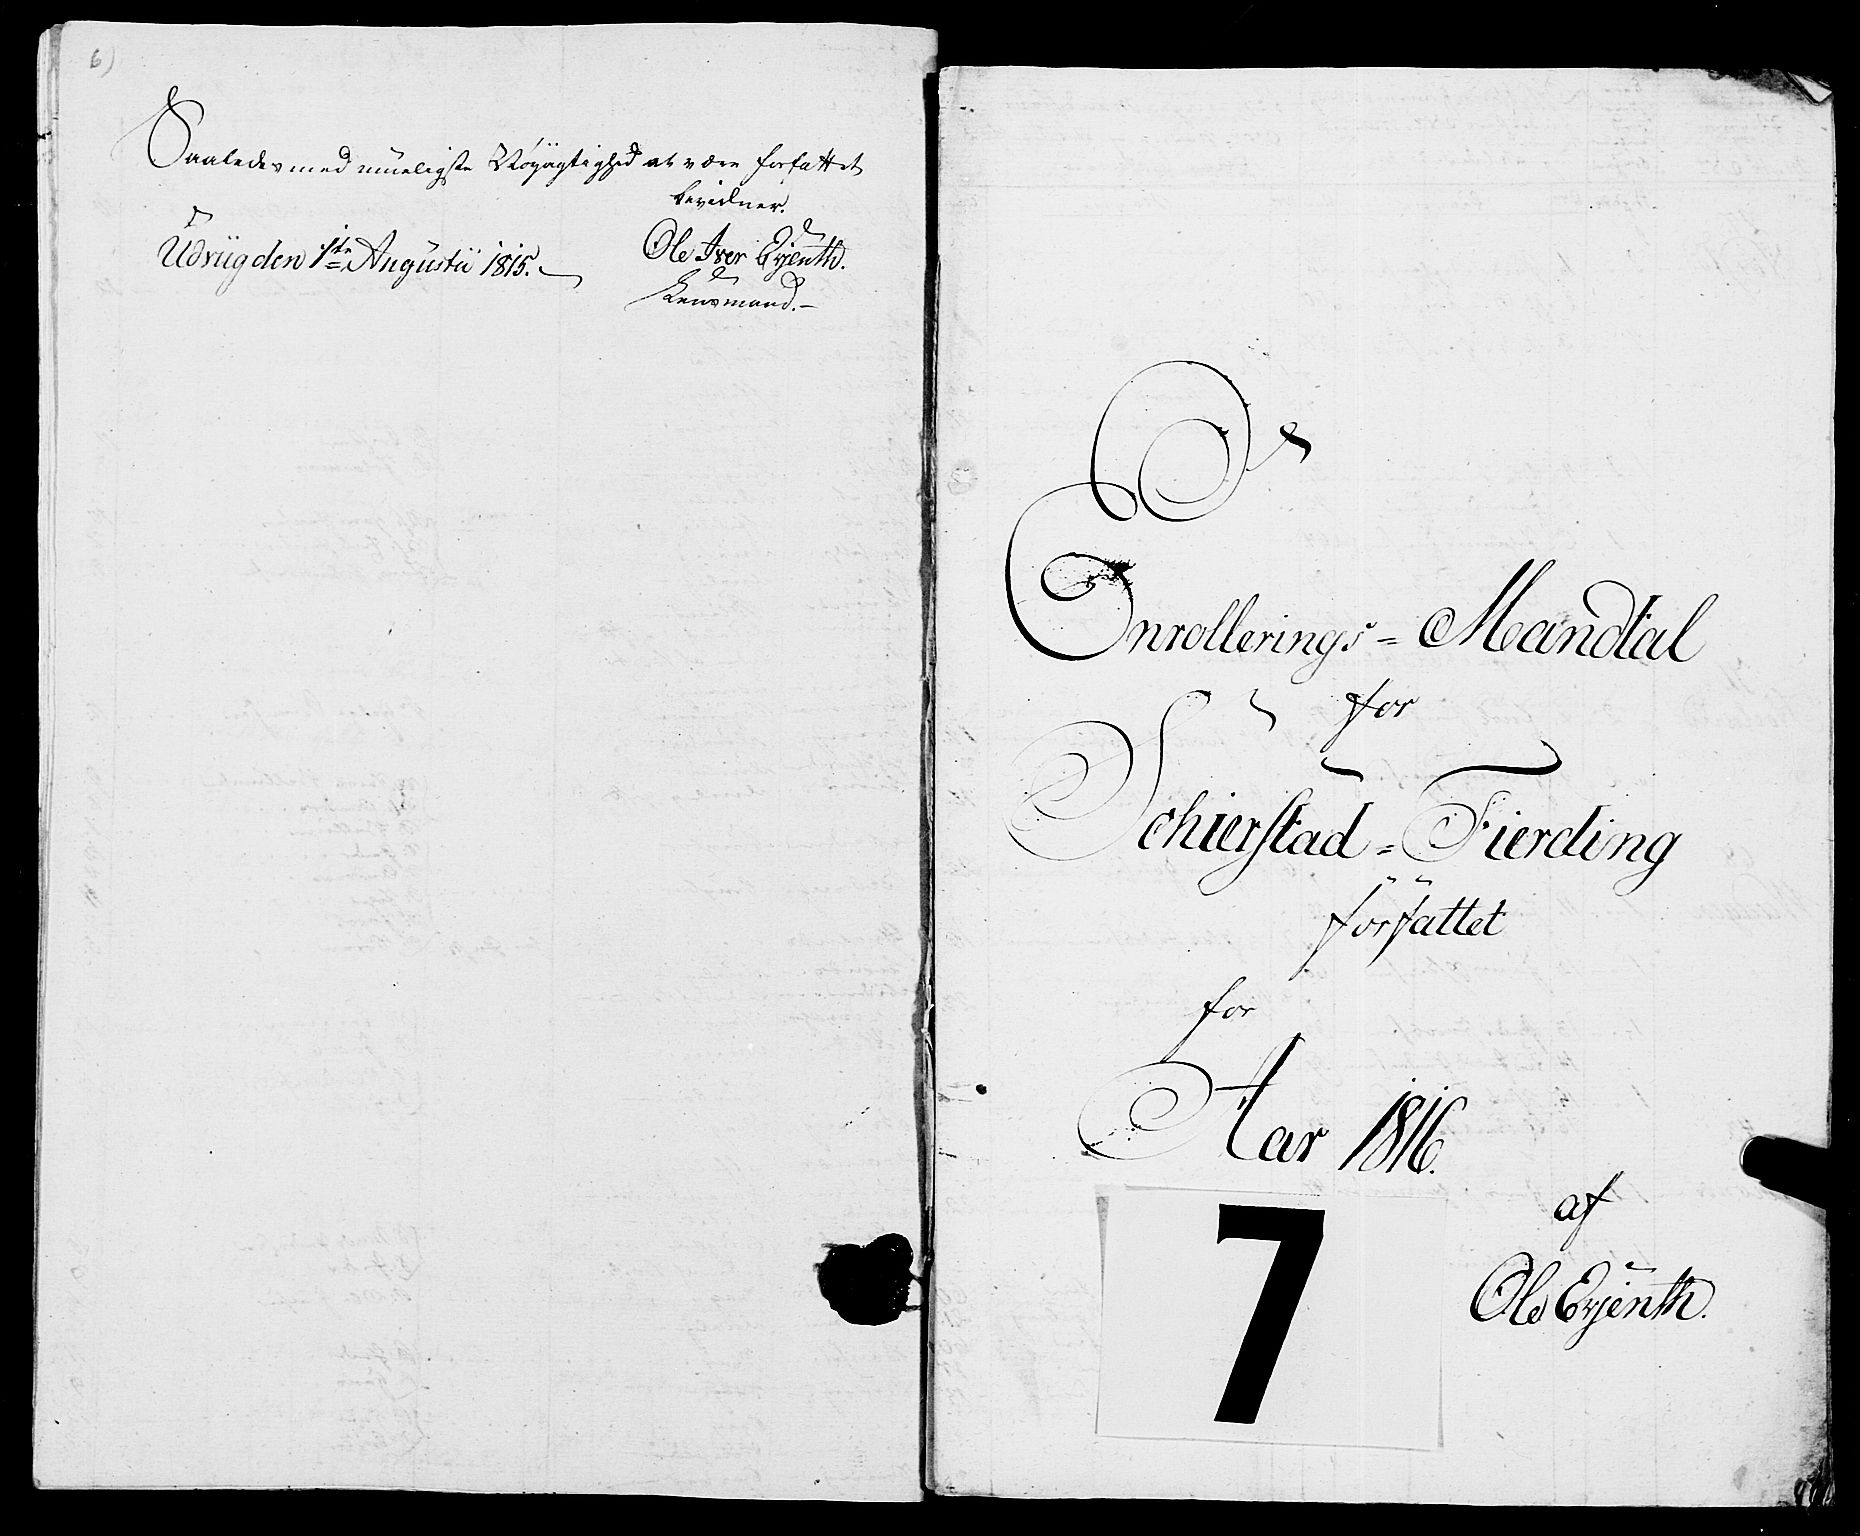 6)
Saaledes med mueligste Nøyagtighed at være forfattet
bevidner.
Udvüg den 1ste Augustii 1815.
Ole Iver Evjenth.
Lensmand.
Enrollerings=Mandtal
for
Schierstad=Fierding
forfattet
for
Aar 1816.
af
Ole Evjenth.
7